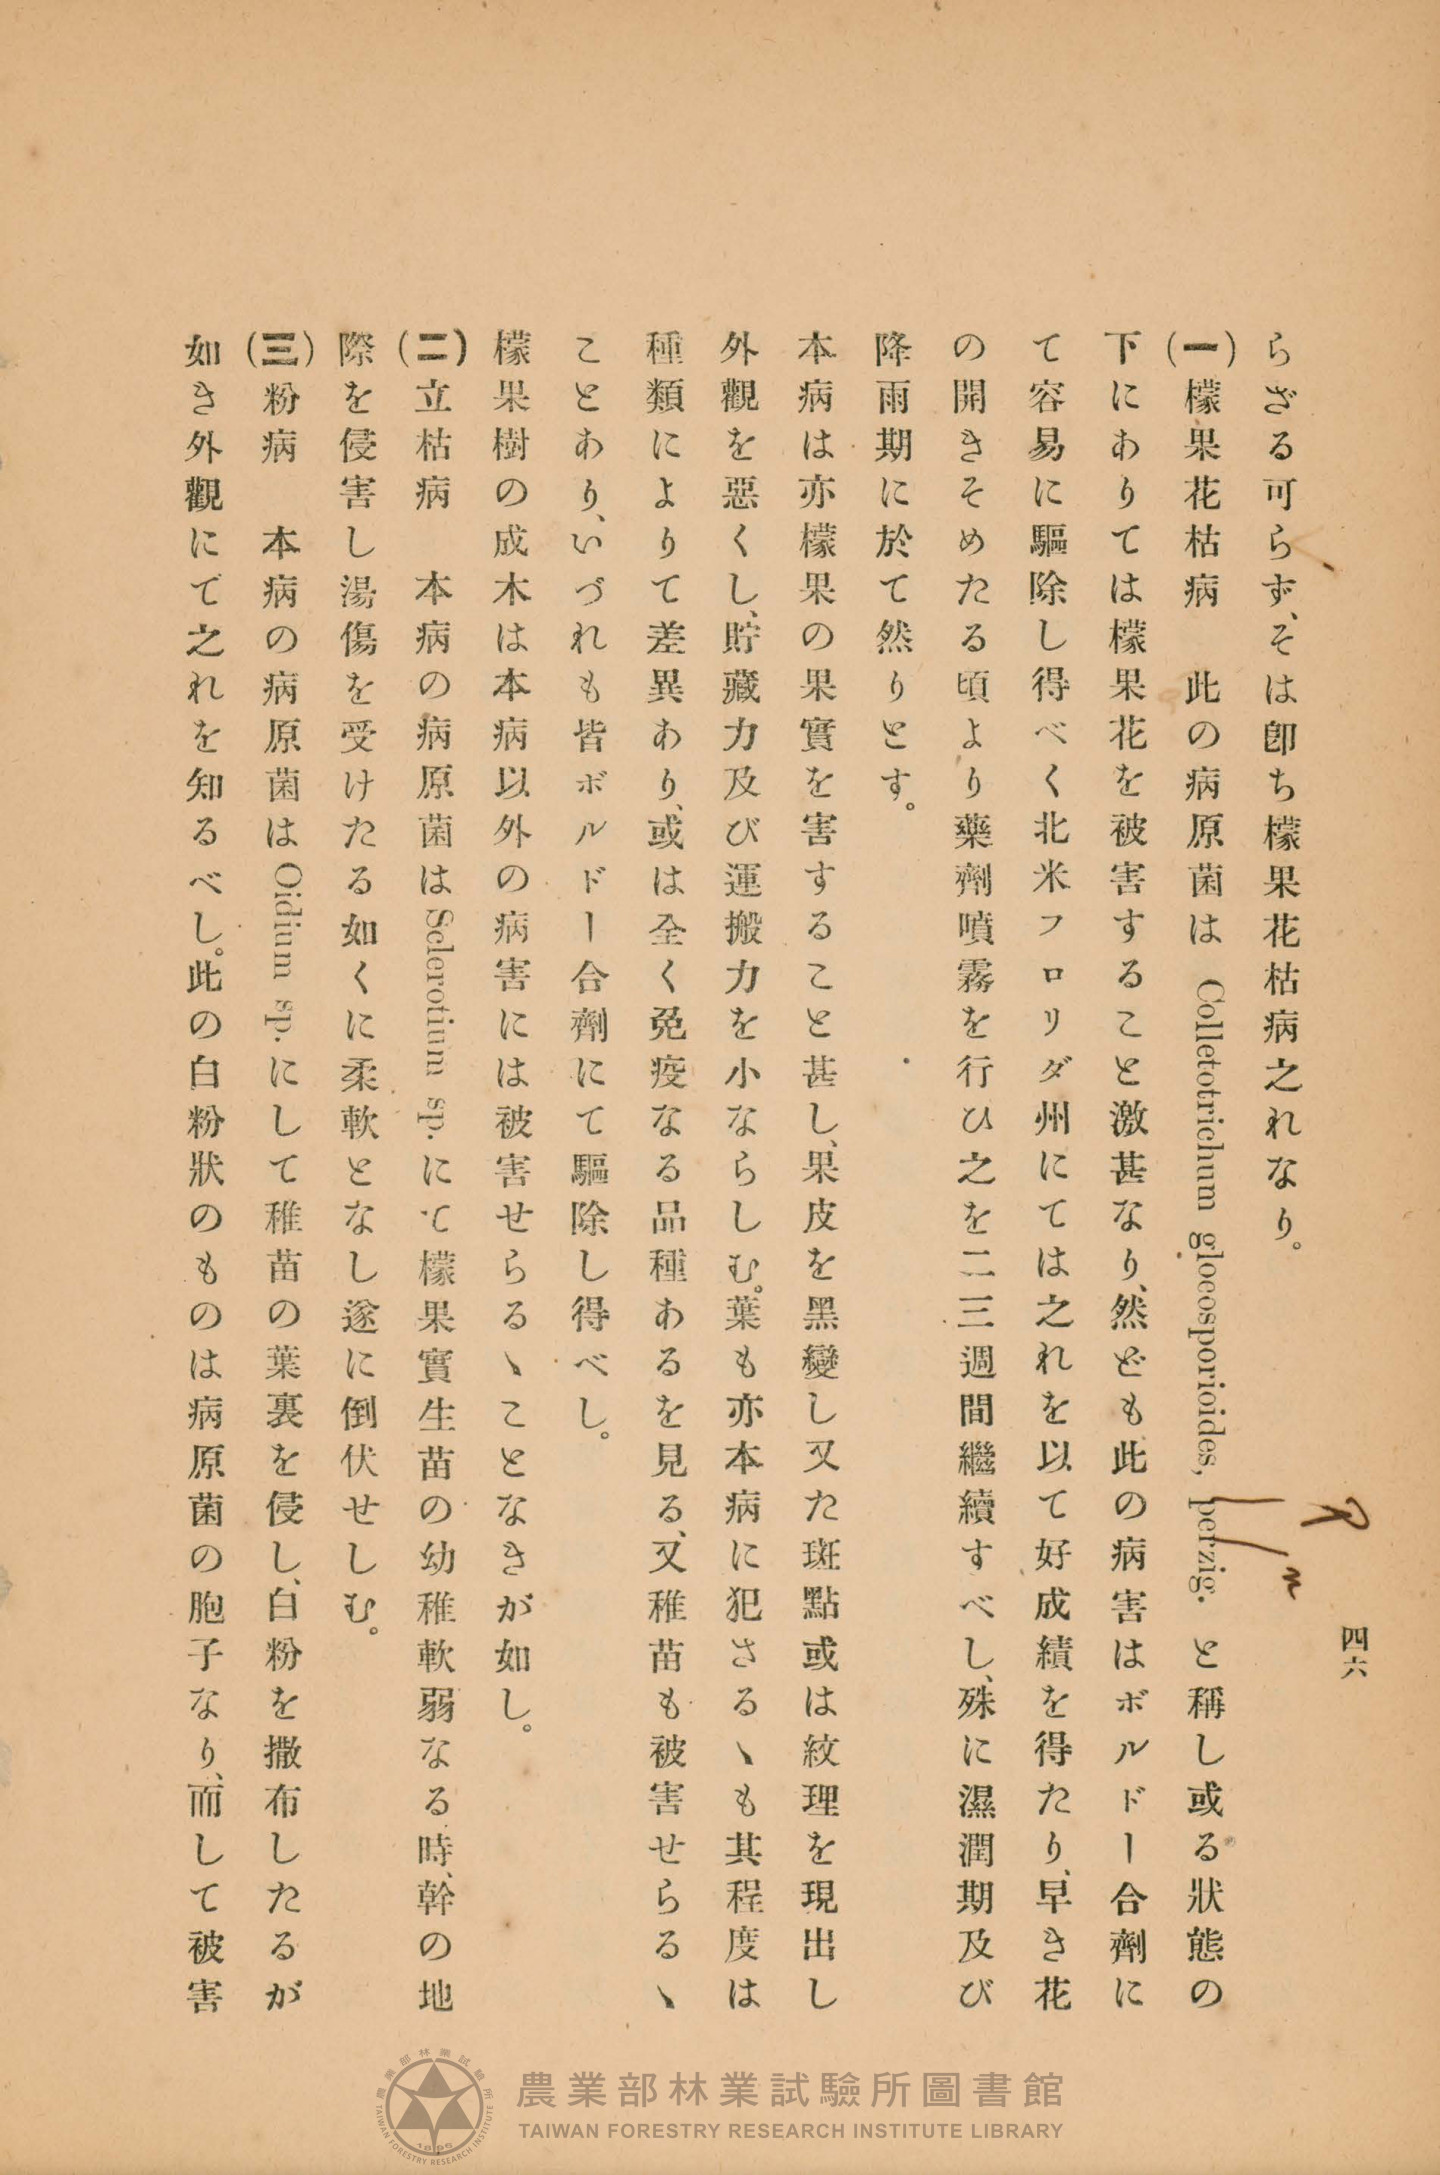 四六
らざる可らず、そは卽ち檬果花枯病之れなり。
(一)檬果花枯病　此の病原菌は Colletotrichum gloeosporioides, perzig. と稱し或る狀態の
下にありては檬果花を被害すること激甚なり、然ども此の病害はボルドー合劑に
て容易に驅除し得べく北米フロリダ州にては之れを以て好成績を得たり、早き花
の開きそめたる頃より藥劑噴霧を行ひ之を二三週間繼續すべし、殊に濕潤期及び
降雨期に於て然りとす。
本病は亦檬果の果實を害すること甚し、果皮を黑變し又た斑點或は紋理を現出し
外觀を惡くし、貯藏力及び運搬力を小ならしむ。葉も亦本病に犯さるヽも其程度は
種類によりて差異あり、或は全く免疫なる品種あるを見る、又稚苗も被害せらるヽ
ことあり、いづれも皆ボルドー合劑にて驅除し得べし。
檬果樹の成木は本病以外の病害には被害せらるヽことなきが如し。
(二)立枯病　本病の病原菌は Sclerotium sp. にて檬果實生苗の幼稚軟弱なる時、幹の地
際を侵害し湯傷を受けたる如くに柔軟となし遂に倒伏せしむ。
(三)粉病　本病の病原菌は Oidium sp. にして稚苗の葉裏を侵し、白粉を撒布したるが
如き外觀にで之れを知るべし。此の白粉狀のものは病原菌の胞子なり、而して被害
農業部林業試驗所圖書館
TAIWAN FORESTRY RESEARCH INSTITUTE LIBRARY
農業部林業試驗所
TAIWAN FORESTRY RESEARCH INSTITUTE
1896